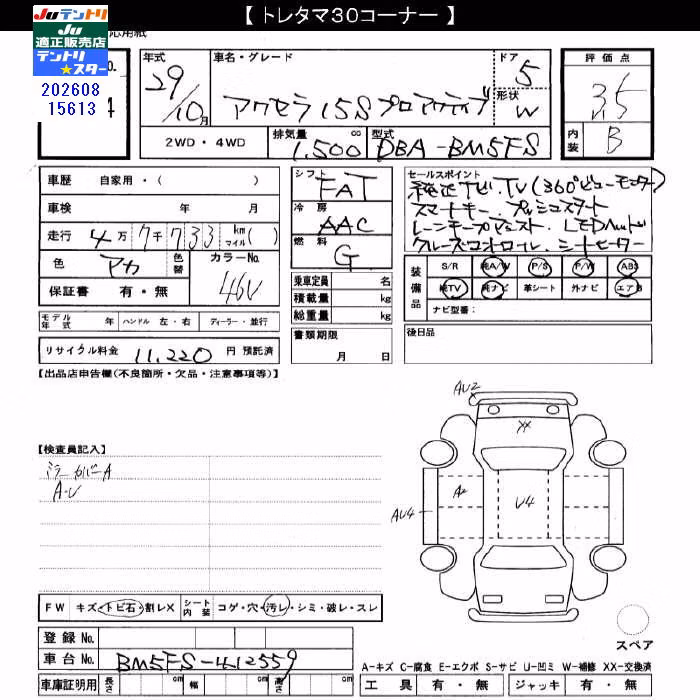 【 トレタマ30コーナー 】
Juテントリ
Ju
適正販売店
テントリ
★スター
202608
15613
年式 29/10月
車名・グレード アクセラ 15S プロアクティブ
ドア 5
形状 W
評価点 3.5
内装 B
2WD・4WD
排気量 1,500 cc
型式 DBA-BM5FS
車歴 自家用・( )
車検 年 月
走行 4万7千733 km マイル( )
色 アカ 色替 カラーNo. 46V
保証書 有・無
モデル年式 年 ハンドル 左・右 ディーラー・並行
リサイクル料金 11,220 円 預託済
シフト FAT
冷房 AAC
燃料 G
乗車定員 名
積載量 kg
総重量 kg
書類期限
月 日
セールスポイント
純正ナビ.TV(360°ビューモニター)
スマートキー プッシュスタート
レーンキープアシスト. LEDヘッド
クルーズコントロール. シートヒーター
装備品
S/R 純A/W P/S P/W ABS
純TV 純ナビ 革シート 外ナビ エアB
ナビ型番:
後日品
【出品店申告欄(不良箇所・欠品・注意事項等)】
【検査員記入】
ミラーカバーA
A・U
AU2
XX
A2
U4
AU4
FW キズ・トビ石・割レX シート内装 コゲ・穴・汚レ・シミ・破レ・スレ
登録 No.
車台 No. BM5FS-412559
車庫証明用 長さ cm 幅 cm 高さ cm
スペア
A-キズ C-腐食 E-エクボ S-サビ U-凹ミ W-補修 XX-交換済
工具 有・無 ジャッキ 有・無